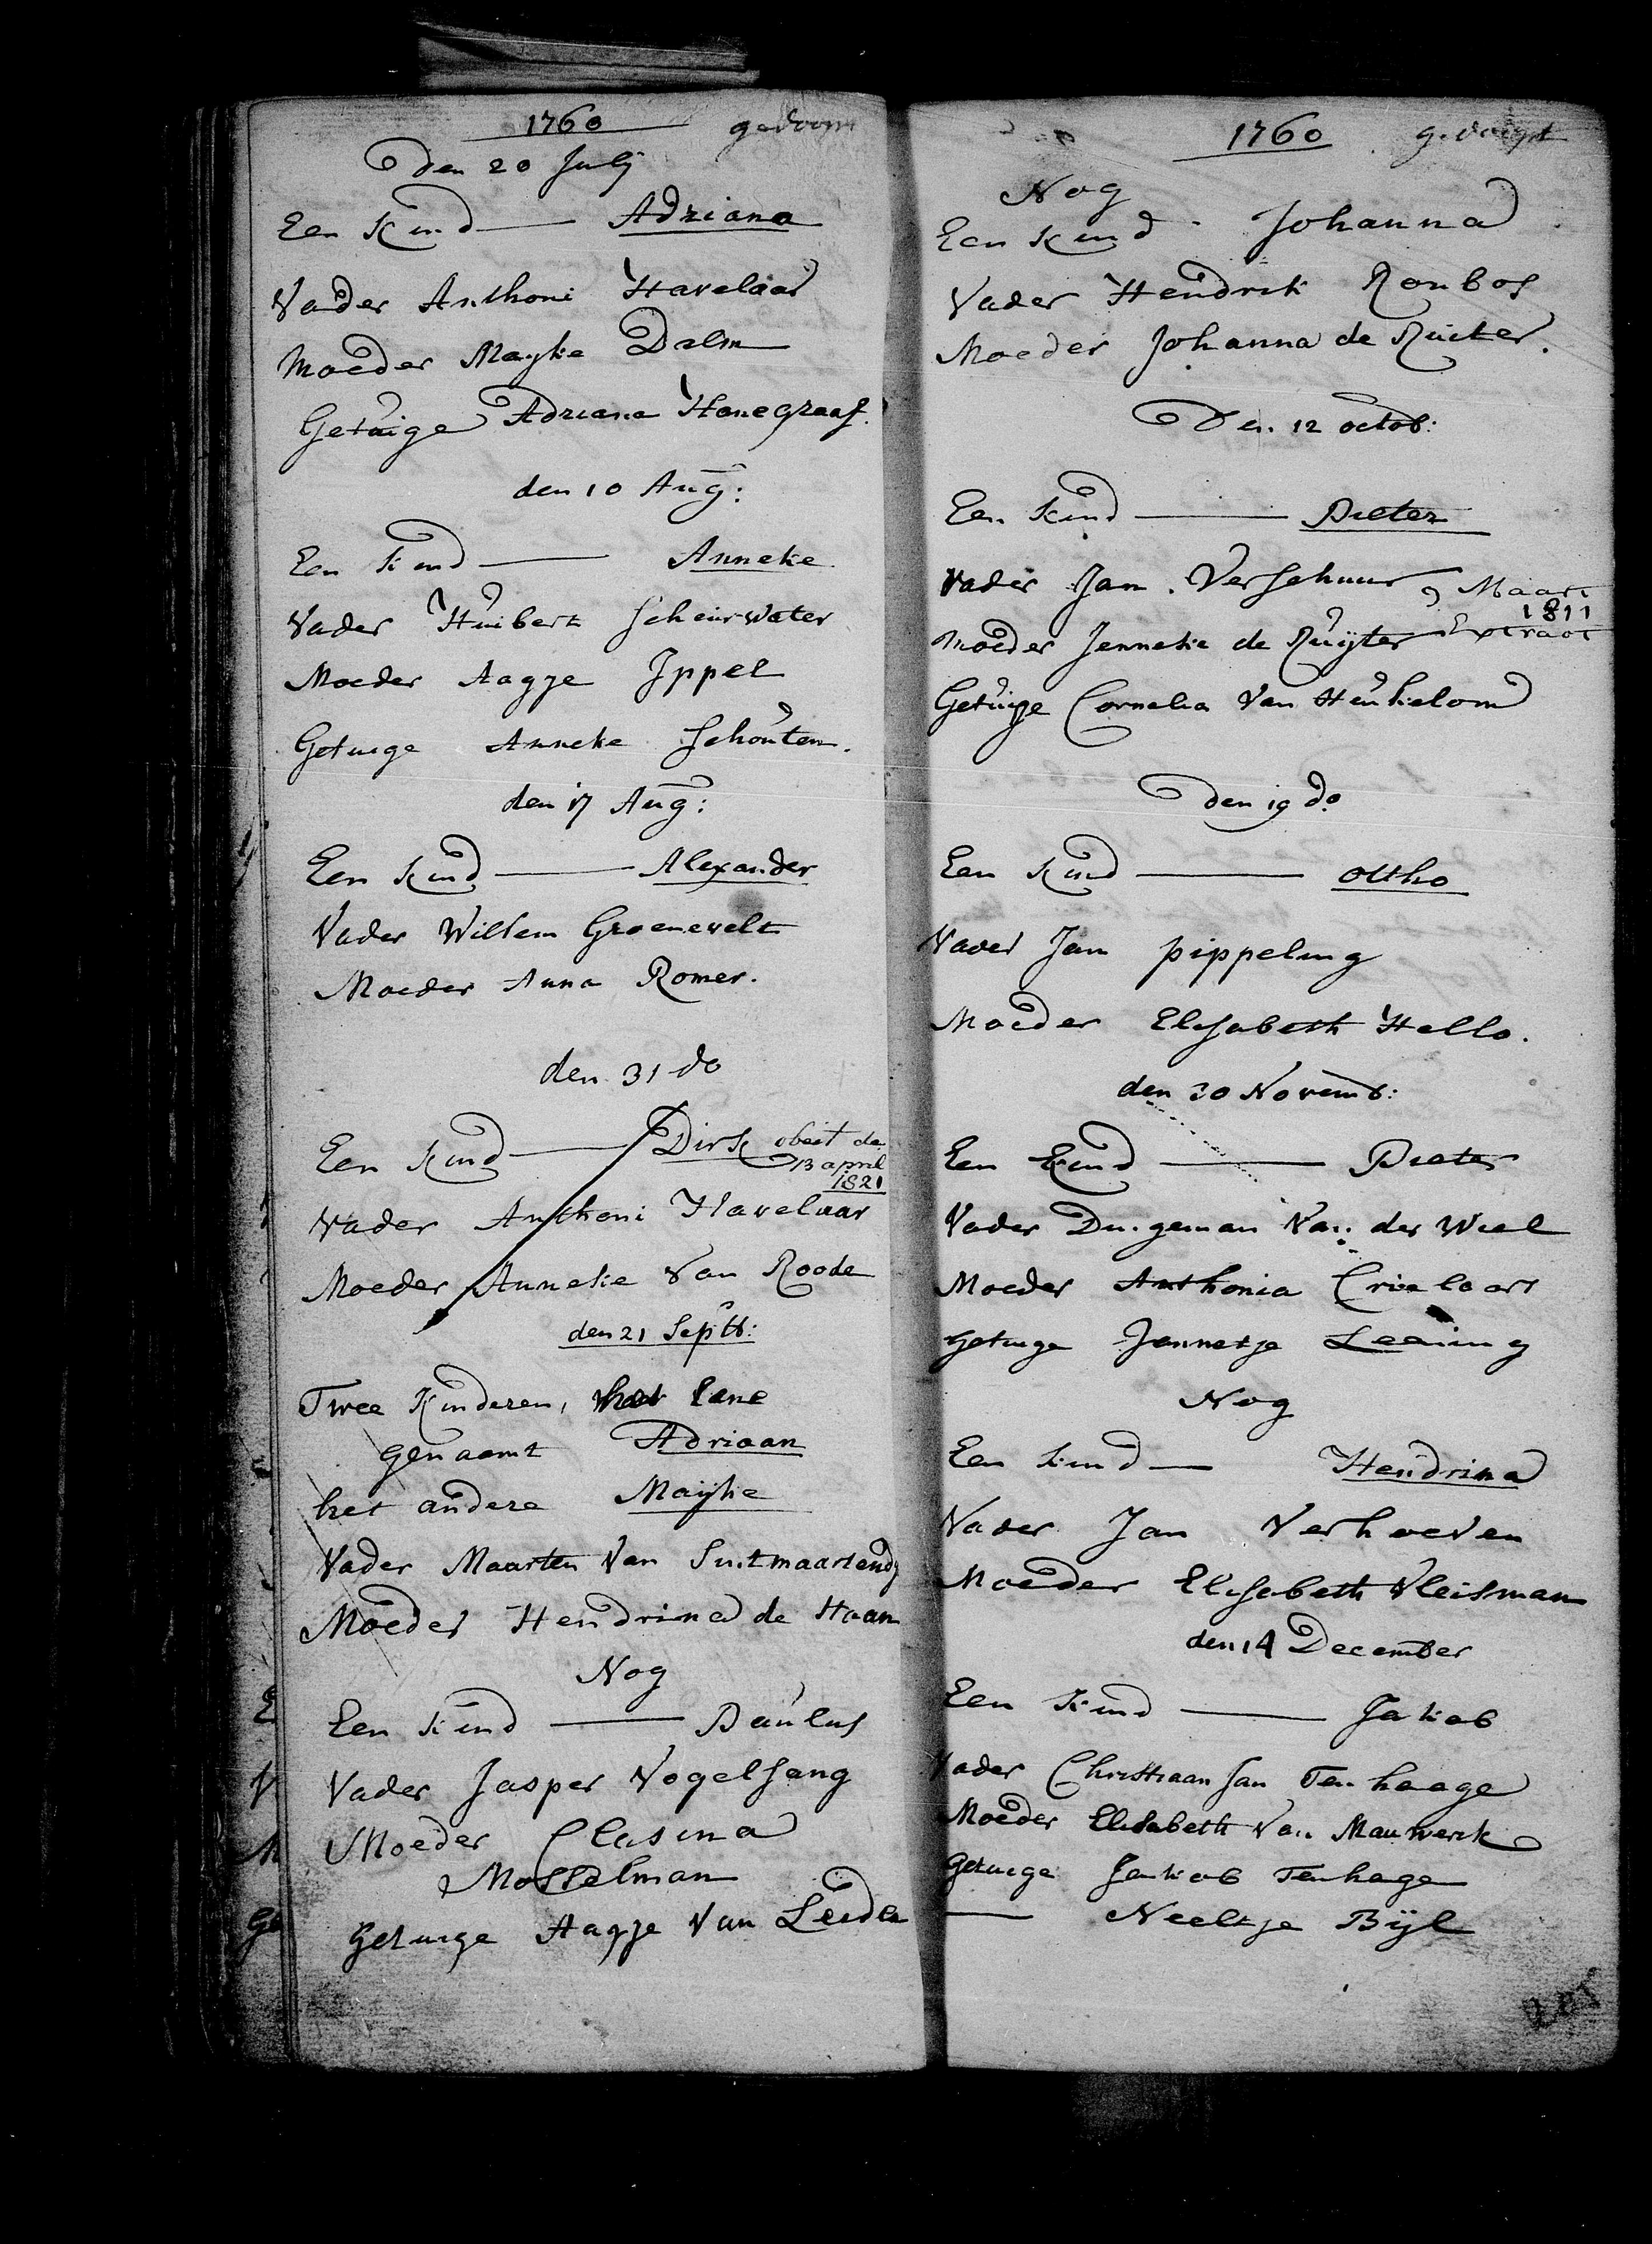 1760 gedoopt
den 20 Julij
Een Kind — Adriana
Vader Anthoni Havelaar
Moeder Mayke Dalm
Getuige Adriana Hanegraaf.
den 10 Aug:
Een Kind — Anneke
Vader Huibert Scheurwater
Moeder Aagje Ippel
Getuige Anneke Schouten.
den 17 Aug:
Een Kind — Alexander
Vader Willem Groenevelt
Moeder Anna Romer.
den 31 do
Een Kind — Dirk obiit de
13 april
1821
Vader Anthoni Havelaar
Moeder Anneke Van Roode
den 21 Septb:
Twee Kinderen, het Eene
genaamt Adriaan
het andere Maijke
Vader Maarten Van Sintmaartensd
Moeder Hendrina de Haan
Nog
Een Kind — Paulus
Vader Jasper Vogelsang
Moeder Clasina
Mosselman
Getuige Aagje Van
1760 gedoopt
Nog
Een Kind - Johanna
Vader Hendrik Ronbos
Moeder Johanna de Ruiter.
Den 12 octob:
Een Kind — Pieter
Vader Jan Verschuur 9 Maart
1811
Moeder Jenneke de Ruijter Extract
Getuige Cornelia Van Heukelom
den 19 do
Een Kind — Ottho
Vader Jan pippeling
Moeder Elisabeth Hello.
den 30 Novemb:
Een Kind — Pieter
Vader Dingeman Van der Weel
Moeder Anthonia Crielaart
Getuige Jannetje
Nog
Een Kind — Hendrina
Vader Jan Verhoeven
Moeder Elisabeth Vleisman
den 14 December
Een Kind — Jakob
Vader Christiaan Jan Ten haage
Moeder Elisabeth Van Mauwerk
Getuige Jakob Tenhage
— Neeltje Bijl